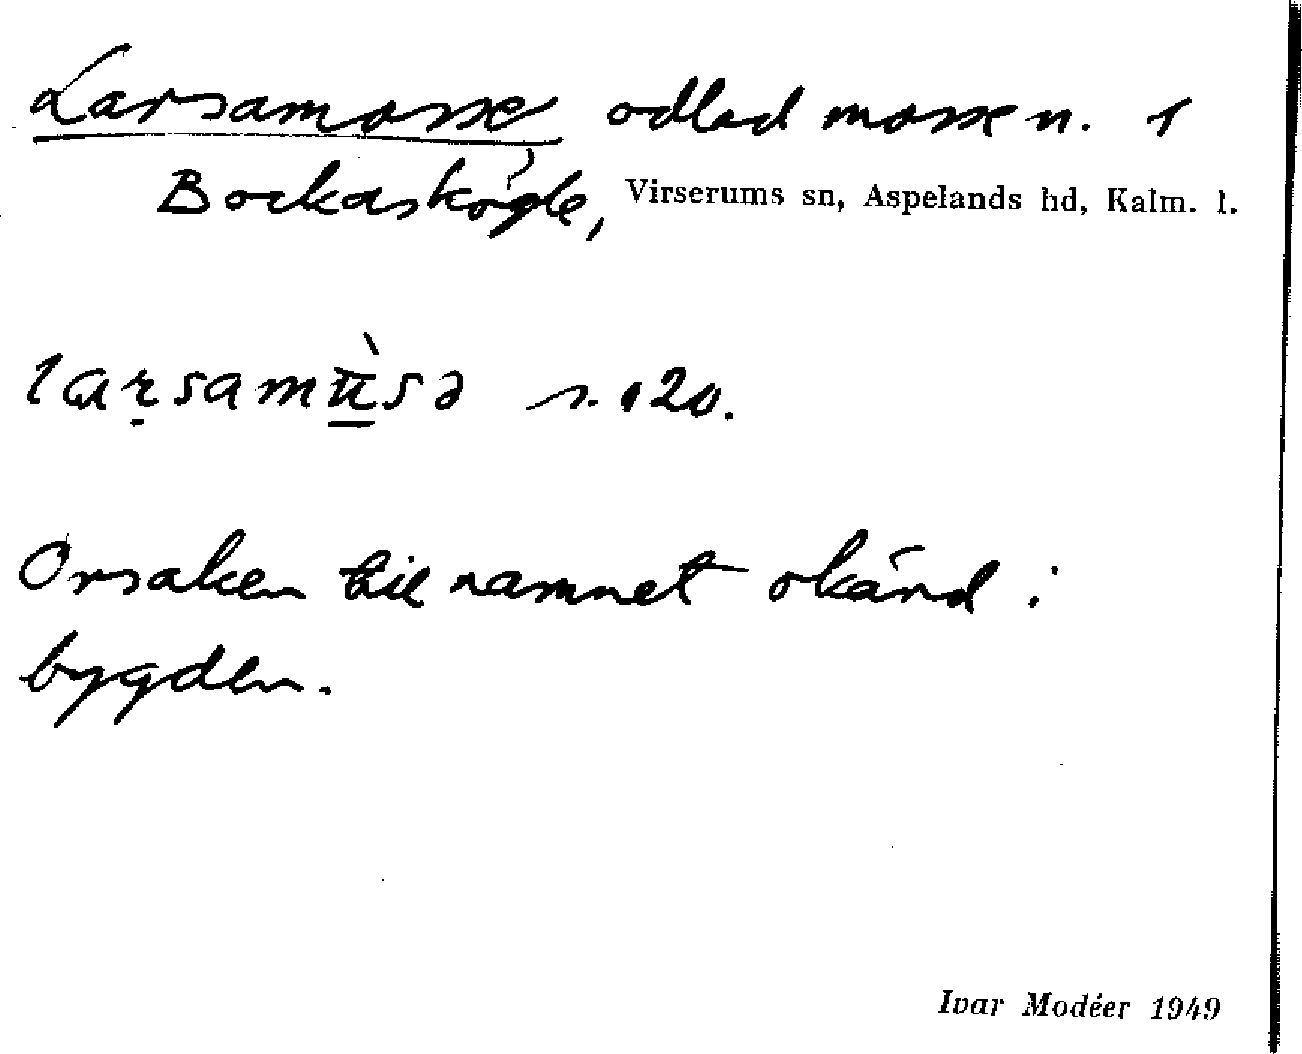 Larsamosse odlad mosse n. 1
Bockaskögle, Virserums sn, Aspelands hd, Kalm. l.
s. 120.
Orsaken till namnet okänd i
bygden.
Ivar Modéer 1949